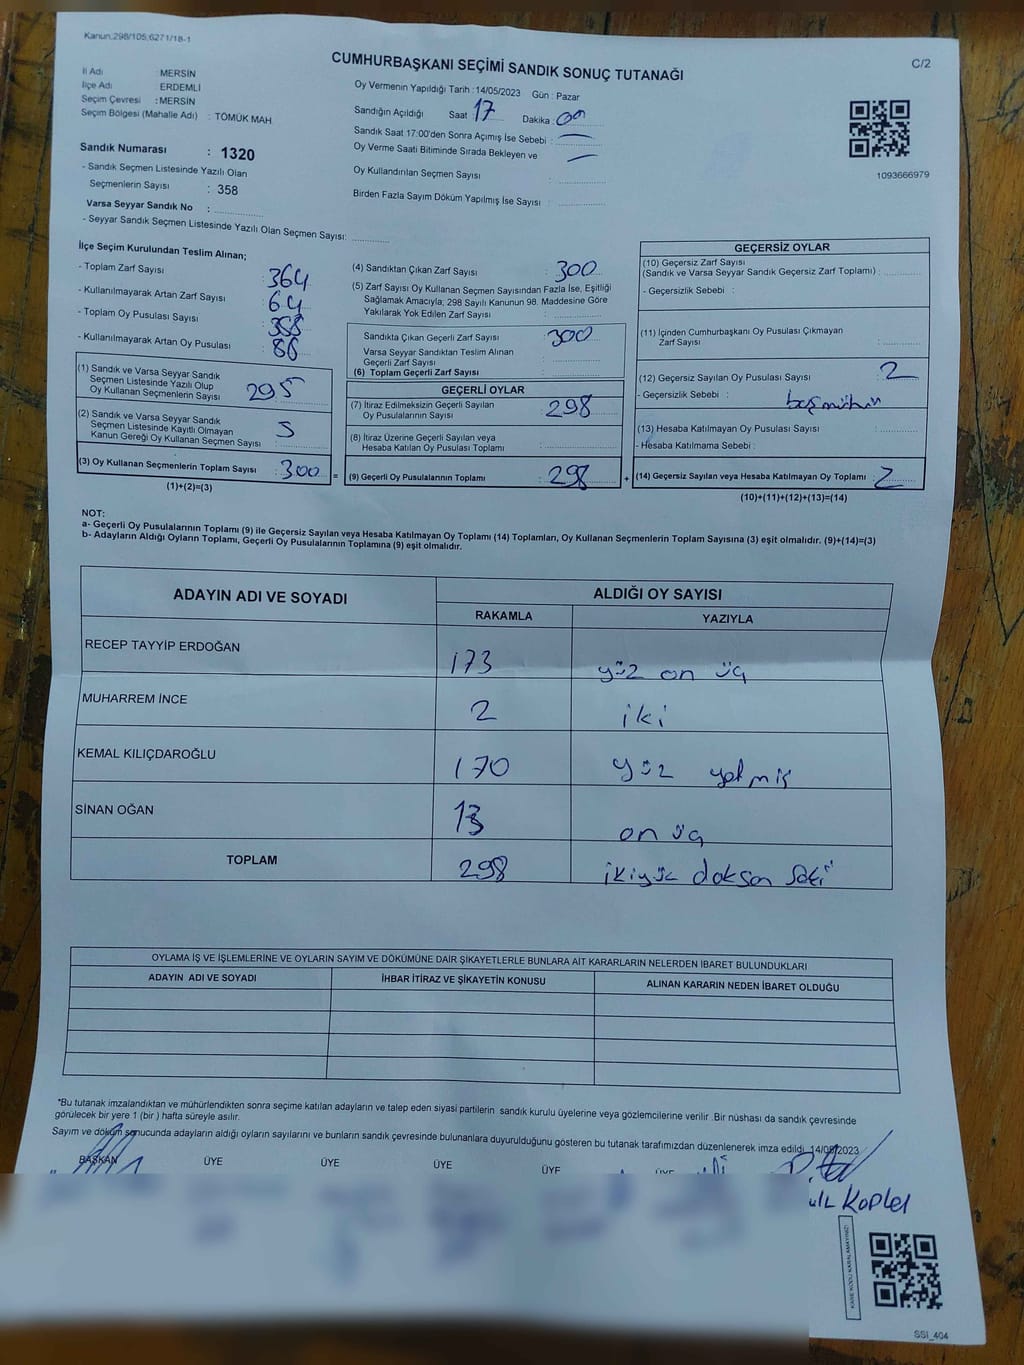 Kanun:298/105;6271/18-1
C/2
CUMHURBAŞKANI SEÇİMİ SANDIK SONUÇ TUTANAĞI
İl Adı : MERSİN
İlçe Adı : ERDEMLİ
Seçim Çevresi : MERSİN
Seçim Bölgesi (Mahalle Adı) : TÖMÜK MAH.
Oy Vermenin Yapıldığı Tarih : 14/05/2023 Gün : Pazar
Sandığın Açıldığı Saat 17 Dakika : 00
Sandık Saat 17:00'den Sonra Açımış İse Sebebi :
Oy Verme Saati Bitiminde Sırada Bekleyen ve
Oy Kullandırılan Seçmen Sayısı :
Birden Fazla Sayım Döküm Yapılmış İse Sayısı :
1093666979
Sandık Numarası : 1320
- Sandık Seçmen Listesinde Yazılı Olan
Seçmenlerin Sayısı : 358
Varsa Seyyar Sandık No :
- Seyyar Sandık Seçmen Listesinde Yazılı Olan Seçmen Sayısı:
İlçe Seçim Kurulundan Teslim Alınan;
- Toplam Zarf Sayısı : 364
- Kullanılmayarak Artan Zarf Sayısı : 64
- Toplam Oy Pusulası Sayısı
- Kullanılmayarak Artan Oy Pusulası
(1) Sandık ve Varsa Seyyar Sandık
Seçmen Listesinde Yazılı Olup
Oy Kullanan Seçmenlerin Sayısı : 295
(2) Sandık ve Varsa Seyyar Sandık
Seçmen Listesinde Kayıtlı Olmayan
Kanun Gereği Oy Kullanan Seçmen Sayısı : 5
(3) Oy Kullanan Seçmenlerin Toplam Sayısı : 300
(1)+(2)=(3)
=
(4) Sandıktan Çıkan Zarf Sayısı : 300
(5) Zarf Sayısı Oy Kullanan Seçmen Sayısından Fazla İse, Eşitliği
Sağlamak Amacıyla; 298 Sayılı Kanunun 98. Maddesine Göre
Yakılarak Yok Edilen Zarf Sayısı :
Sandıkta Çıkan Geçerli Zarf Sayısı : 300
Varsa Seyyar Sandıktan Teslim Alınan
Geçerli Zarf Sayısı :
(6) Toplam Geçerli Zarf Sayısı :
GEÇERLİ OYLAR
(7) İtiraz Edilmeksizin Geçerli Sayılan
Oy Pusulalarının Sayısı : 298
(8) İtiraz Üzerine Geçerli Sayılan veya
Hesaba Katılan Oy Pusulası Toplamı :
(9) Geçerli Oy Pusulalarının Toplamı : 298
+
GEÇERSİZ OYLAR
(10) Geçersiz Zarf Sayısı
(Sandık ve Varsa Seyyar Sandık Geçersiz Zarf Toplamı) :
- Geçersizlik Sebebi :
(11) İçinden Cumhurbaşkanı Oy Pusulası Çıkmayan
Zarf Sayısı :
(12) Geçersiz Sayılan Oy Pusulası Sayısı : 2
- Geçersizlik Sebebi :
(13) Hesaba Katılmayan Oy Pusulası Sayısı :
- Hesaba Katılmama Sebebi :
(14) Geçersiz Sayılan veya Hesaba Katılmayan Oy Toplamı : 2
(10)+(11)+(12)+(13)=(14)
NOT:
a- Geçerli Oy Pusulalarının Toplamı (9) ile Geçersiz Sayılan veya Hesaba Katılmayan Oy Toplamı (14) Toplamları, Oy Kullanan Seçmenlerin Toplam Sayısına (3) eşit olmalıdır. (9)+(14)=(3)
b- Adayların Aldığı Oyların Toplamı, Geçerli Oy Pusulalarının Toplamına (9) eşit olmalıdır.
ADAYIN ADI VE SOYADI
ALDIĞI OY SAYISI
RAKAMLA YAZIYLA
RECEP TAYYİP ERDOĞAN yüz on üç
MUHARREM İNCE 2 iki
KEMAL KILIÇDAROĞLU 170 yüz yetmiş
SİNAN OĞAN 13 on üç
TOPLAM 298 ikiyüz doksan
OYLAMA İŞ VE İŞLEMLERİNE VE OYLARIN SAYIM VE DÖKÜMÜNE DAİR ŞİKAYETLERLE BUNLARA AİT KARARLARIN NELERDEN İBARET BULUNDUKLARI
ADAYIN ADI VE SOYADI İHBAR İTİRAZ VE ŞİKAYETİN KONUSU ALINAN KARARIN NEDEN İBARET OLDUĞU
*Bu tutanak imzalandıktan ve mühürlendikten sonra seçime katılan adayların ve talep eden siyasi partilerin sandık kurulu üyelerine veya gözlemcilerine verilir .Bir nüshası da sandık çevresinde
görülecek bir yere 1 (bir ) hafta süreyle asılır.
Sayım ve döküm sonucunda adayların aldığı oyların sayılarını ve bunların sandık çevresinde bulunanlara duyurulduğunu gösteren bu tutanak tarafımızdan düzenlenerek imza edildi. 14/05/2023
BAŞKAN ÜYE ÜYE ÜYE ÜYE ÜYE
KARE KODU KARALAMAYINIZ!
SSI_404